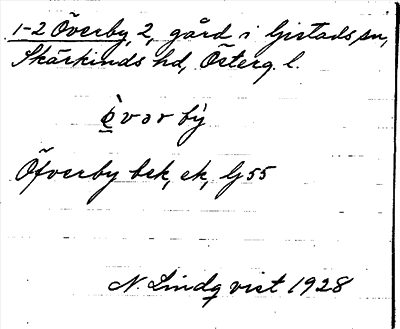 1-2 Överby, 2, gård i Gistads sn,
Skärkinds hd, Österg. l.
è̱vər bỳ
Öfverby bek, ek, Gj 55
N. Lindqvist 1928